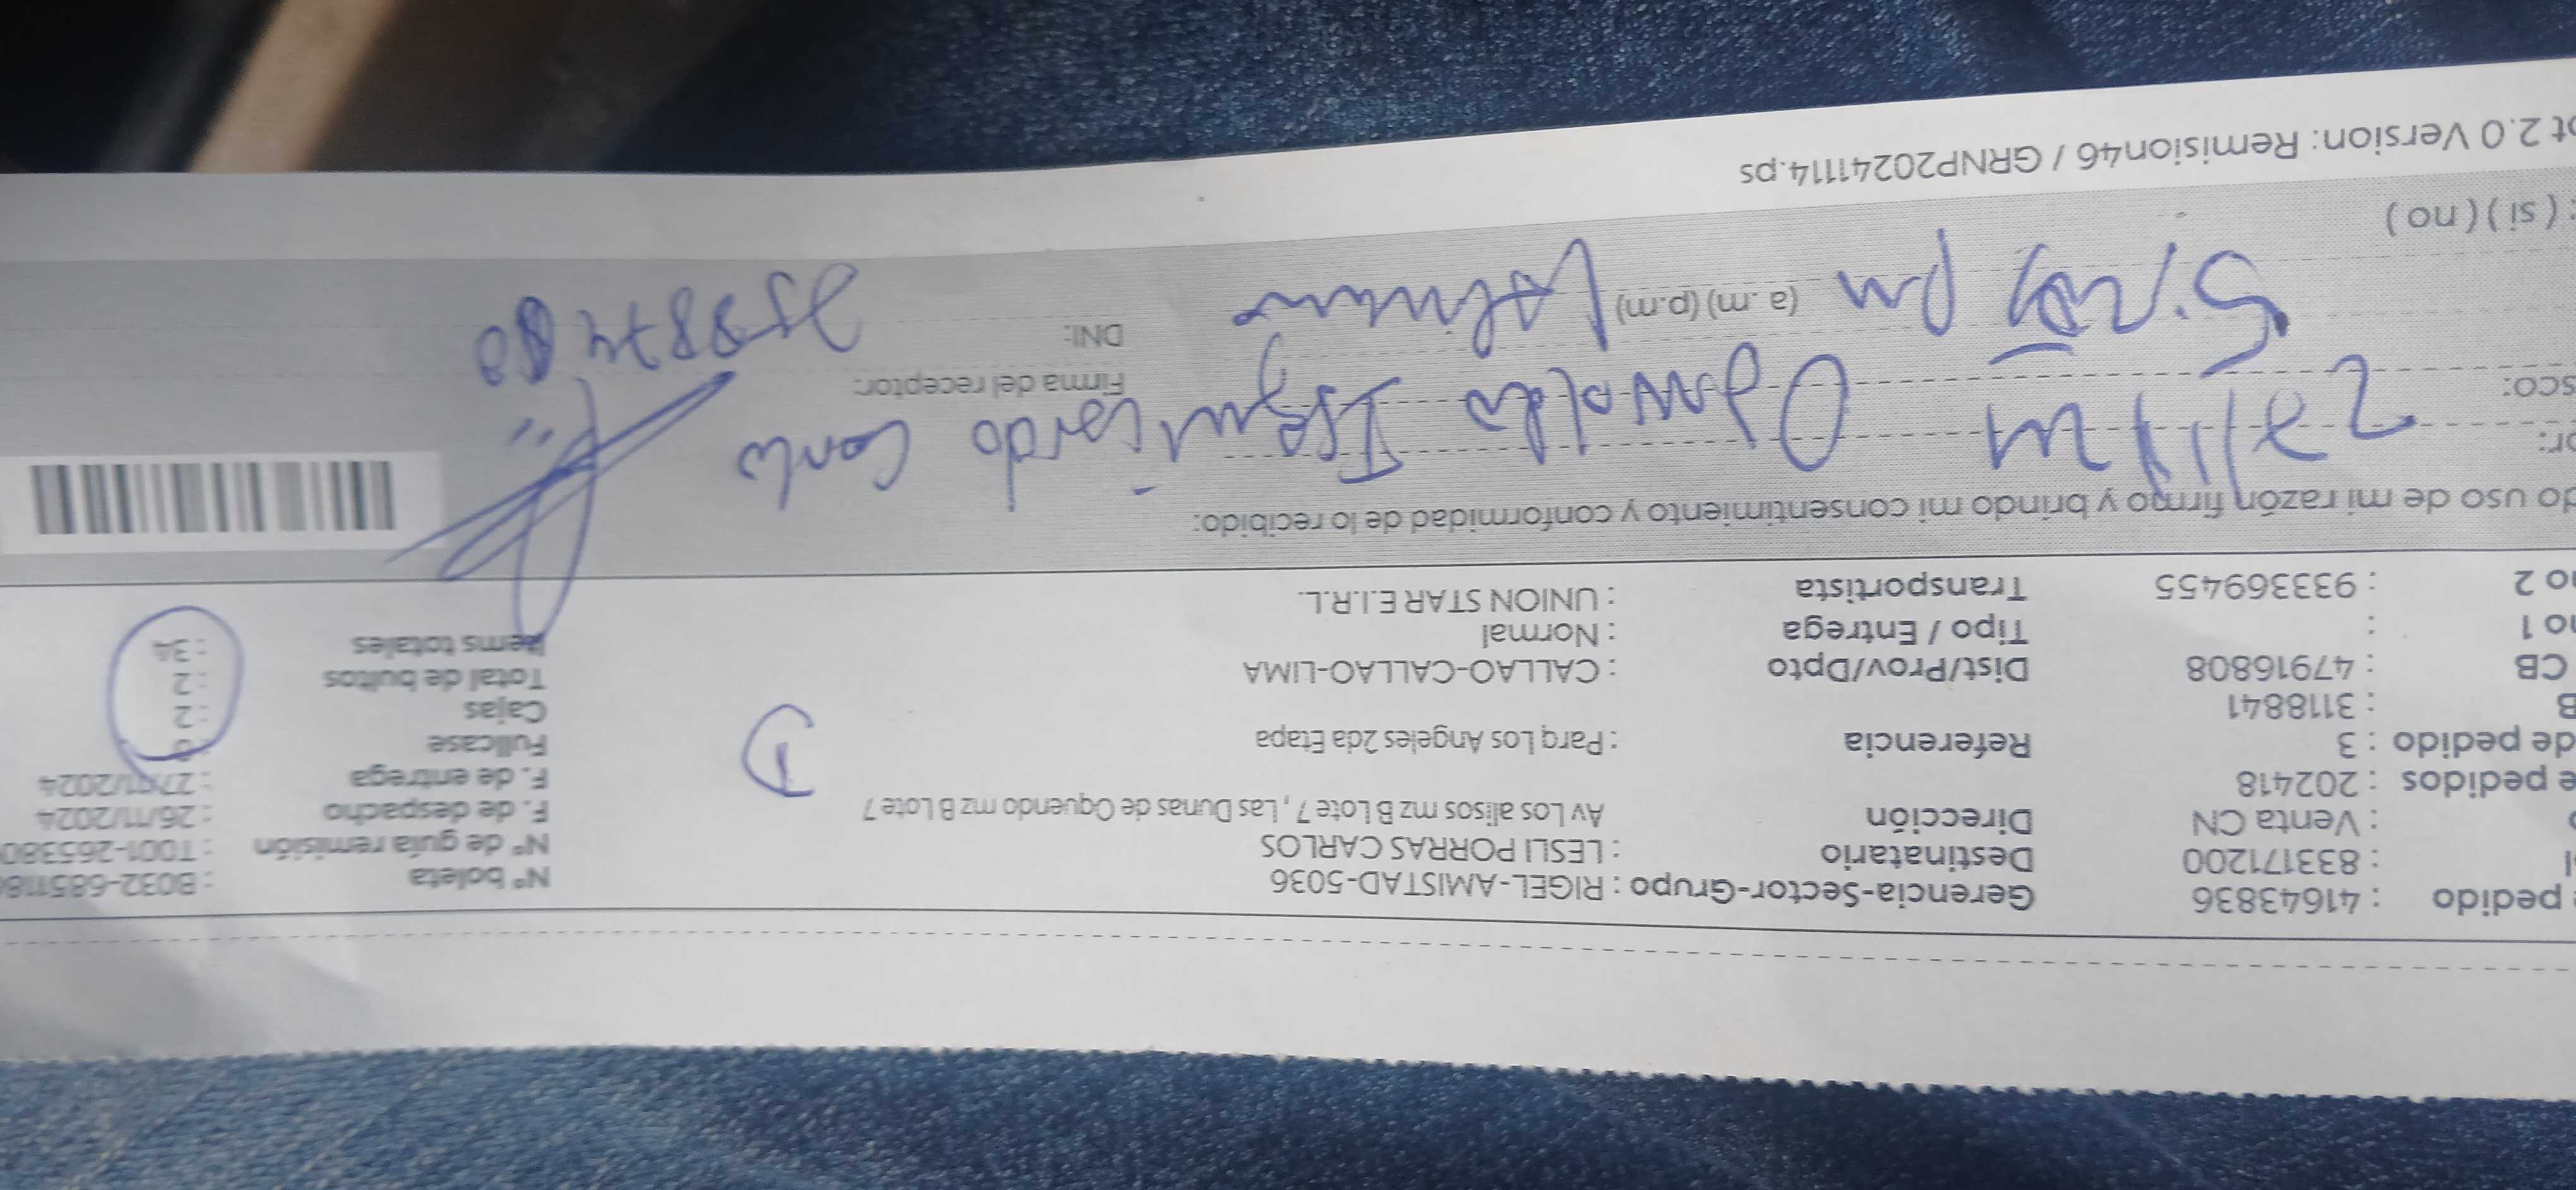 e pedido : 41643836 Gerencia-Sector-Grupo : RIGEL-AMISTAD-5036 N° boleta : B032-685118
: 833171200 Destinatario : LESLI PORRAS CARLOS N° de guía remisión : T001-265380
: Venta CN Dirección Av Los alisos mz B Lote 7 , Las Dunas de Oquendo mz B Lote 7 F. de despacho : 26/11/2024
e pedidos : 202418 F. de entrega : 27/11/2024
de pedido : 3 Referencia : Parq Los Angeles 2da Etapa Fullcase
B : 3118841 D Cajas : 2
CB : 47916808 Dist/Prov/Dpto : CALLAO-CALLAO-LIMA Total de bultos : 2
no 1 : Tipo / Entrega : Normal Items totales : 34
no 2 : 933369455 Transportista : UNION STAR E.I.R.L.
do uso de mi razón firmo y brindo mi consentimiento y conformidad de lo recibido:
or:
sco: 27/11/24 Firma del receptor:
pm (a.m) (p.m) DNI:
: ( si ) ( no )
ot 2.0 Version: Remision46 / GRNP20241114.ps